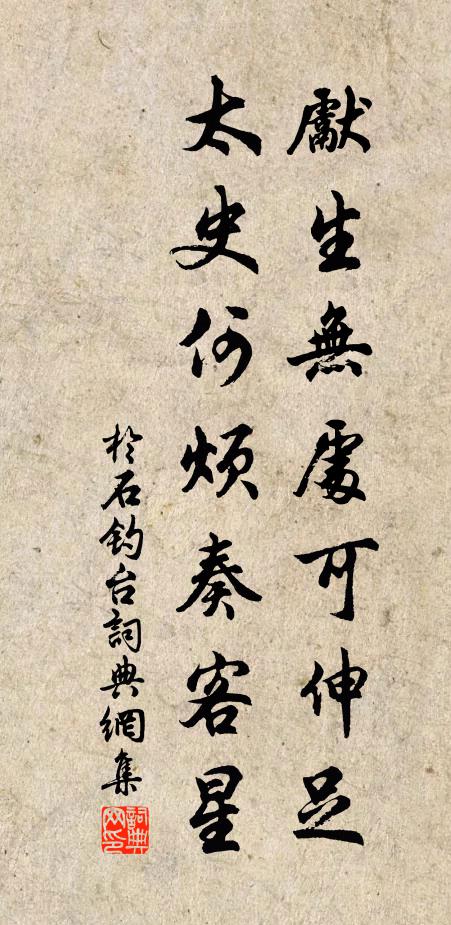 獻生無處可伸足
太史何煩奏客星
於石釣台詞典網集
詞典网印